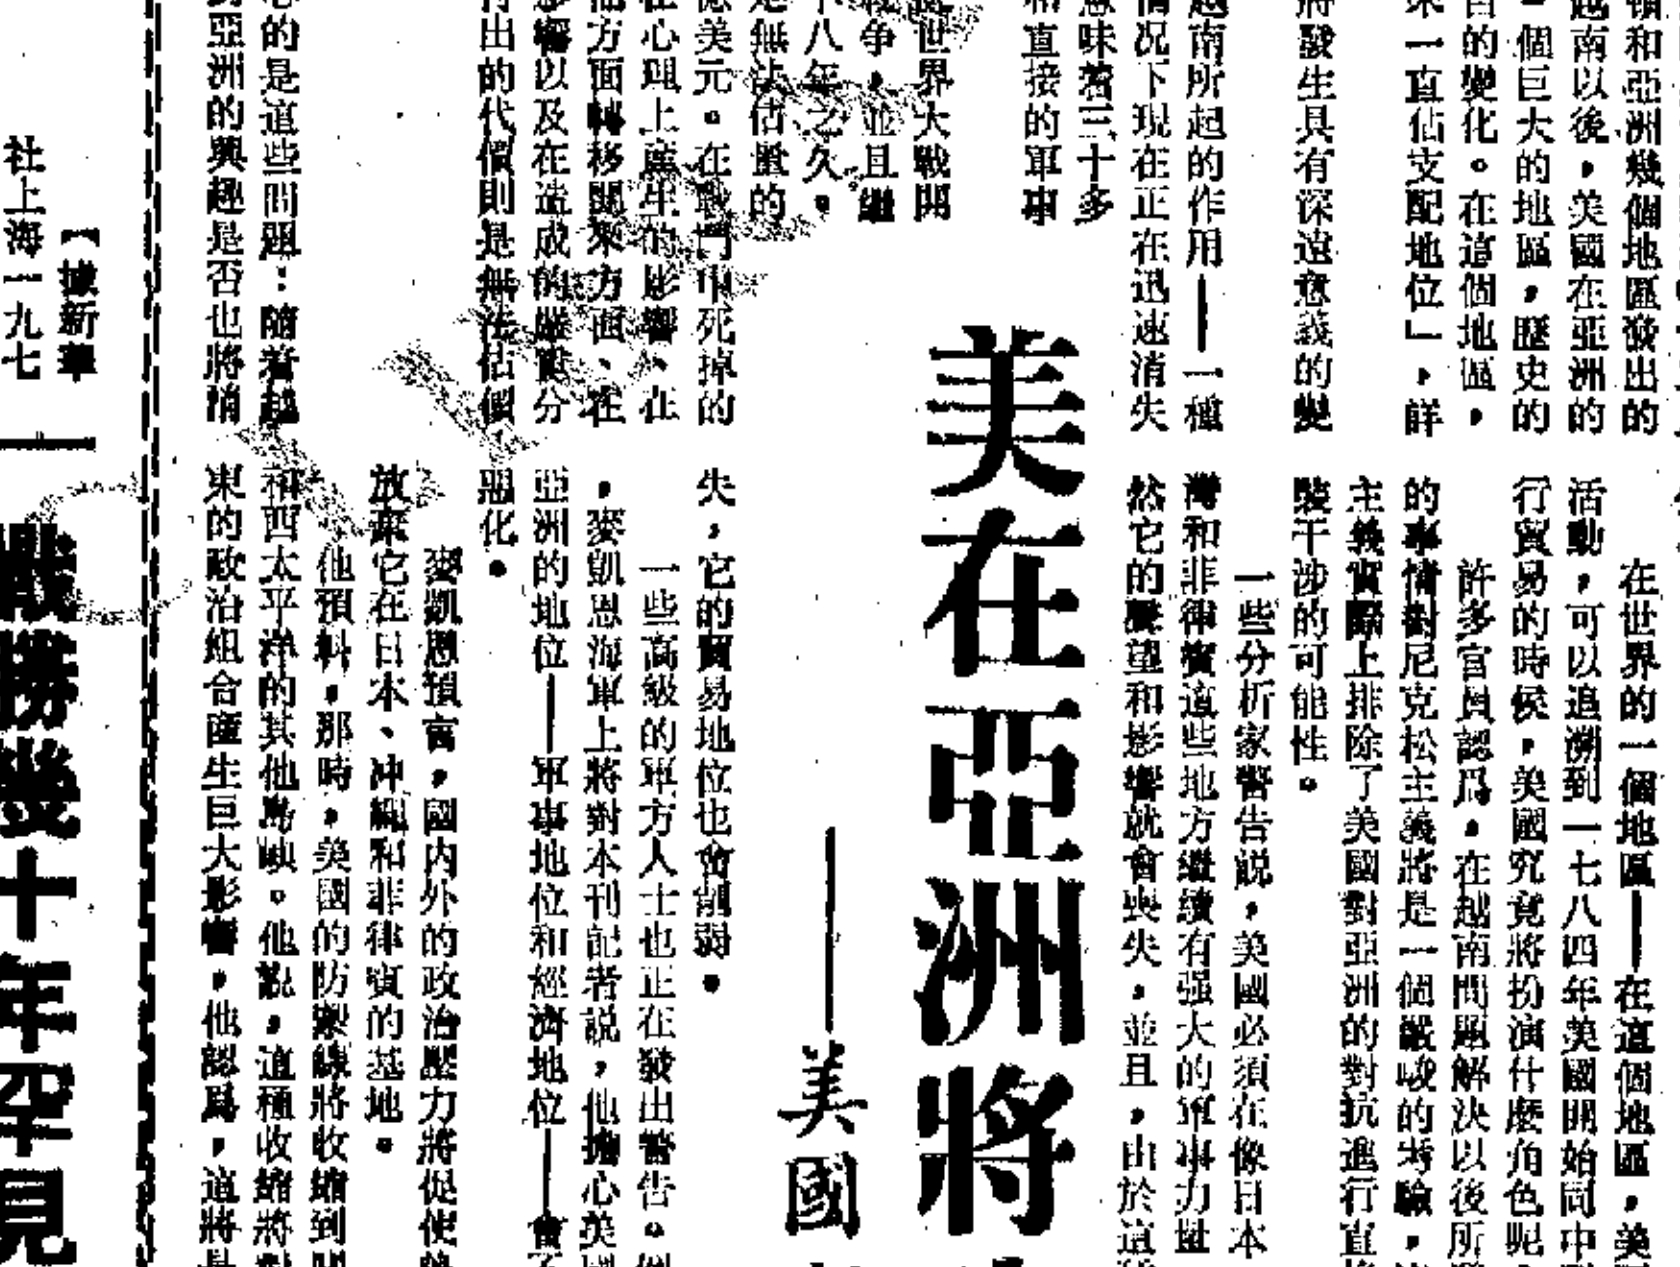 頓和亞洲幾個地區發出的
越南以後，美國在亞洲的
一個巨大的地區，歷史的
目的變化。在這個地區，
來一直佔支配地位」，鮮
將發生具有深遠意義的變
越南所起的作用——一種
情况下現在正在迅速消失
意味着三十多
和直接的軍事
世界大戰開
戰争，並且繼
十八年之久。
是無法估量的
億美元。在戰鬥中死掉的
在心理上產生的影響、在
他方面轉移開來方面、在
影響以及在造成的嚴重分
付出的代價則是無法估價
心的是這些問題：隨着越
對亞洲的興趣是否也將消
在世界的一個地區——在這個地區，美
活動，可以追溯到一七八四年美國開始同中
行貿易的時候，美國究竟將扮演什麽角色呢
許多官員認爲，在越南問題解决以後所
的事情對尼克松主義將是一個嚴峻的考驗，
主義實際上排除了美國對亞洲的對抗進行直
裝干涉的可能性。
一些分析家警告説，美國必須在像日本
灣和非律賓這些地方繼續有强大的軍事力量
然它的聲望和影響就會喪失，並且，由於這
美在亞洲將
——美國
失，它的貿易地位也會削弱。
一些高級的軍方人士也正在發出警告。例
，麥凱恩海軍上將對本刊記者説，他擔心美國
亞洲的地位——軍事地位和經濟地位——會
惡化。
麥凱恩預言，國内外的政治壓力將促使
放棄它在日本、冲繩和菲律賓的基地。
他預料，那時，美國的防禦線將收縮到關
和西太平洋的其他島嶼。他説，這種收縮將對
東的政治組合產生巨大影響，他認爲，這將是
【據新華
社上海一九七
戰勝幾十年罕見